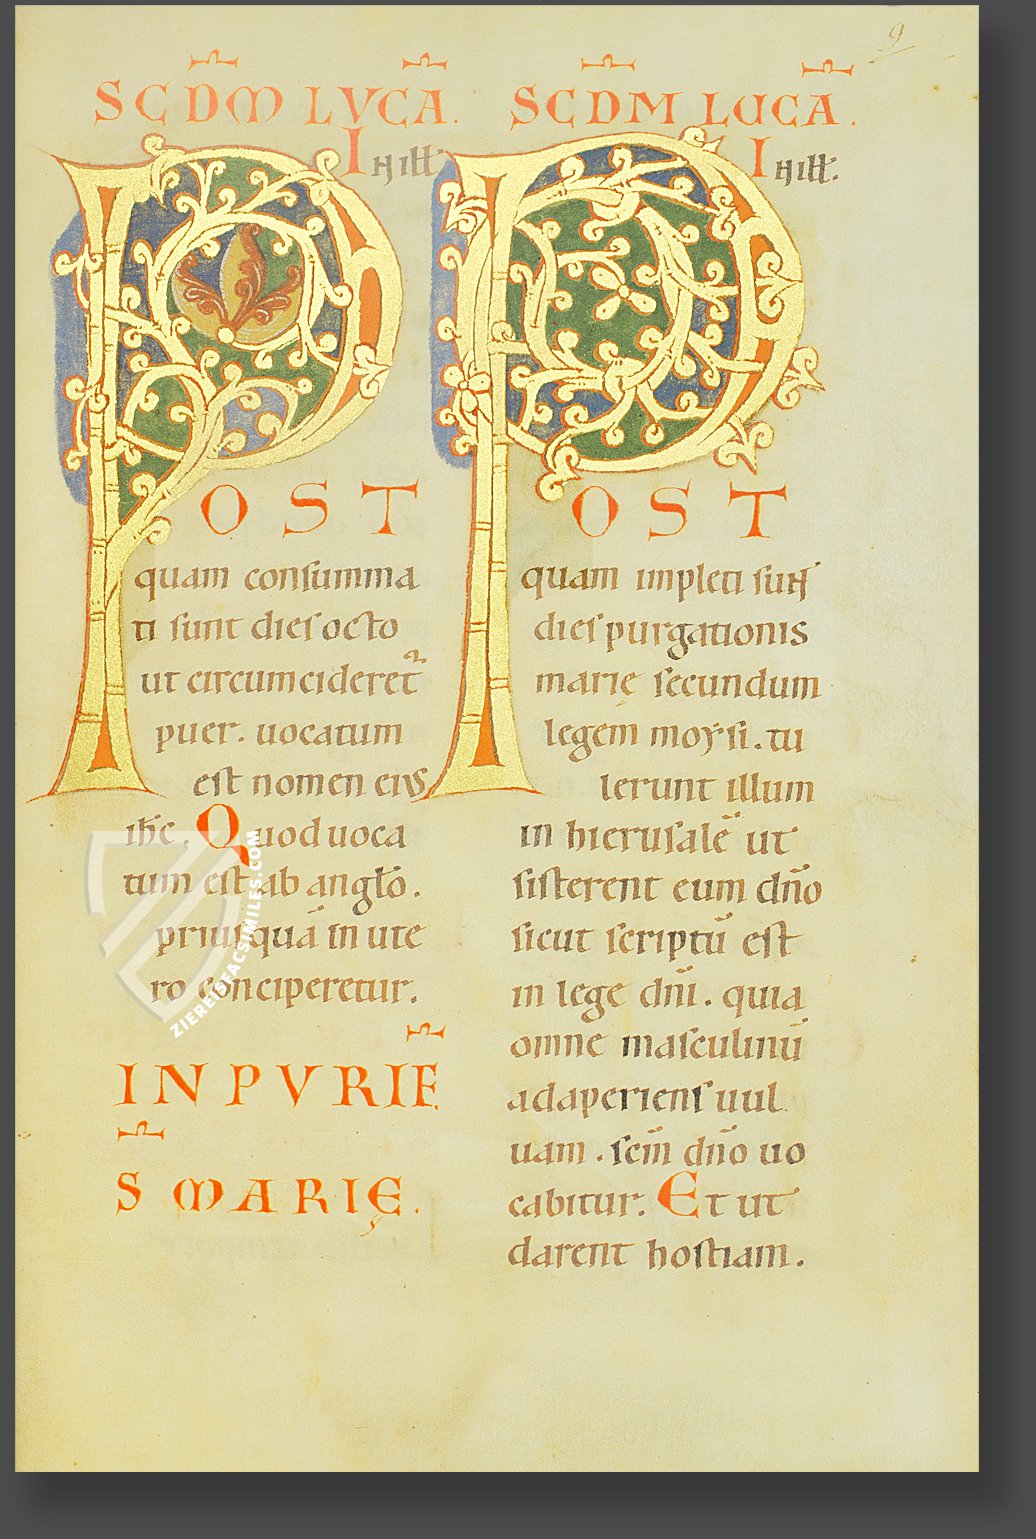 9
SCDM LVCA.
In ill̄t
POST
quam consumma
ti sunt dies octo
ut circumcideret᷑
puer. uocatum
est nomen eius
ih̄c. Quod uoca
tum est ab anglō.
prius quā in ute
ro conciperetur.
IN PVRIF̄.
S̄ MARIĘ.
SCDM LUCA.
In ill̄t.
POST
quam impleti sunt
dies purgationis
marię secundum
legem moysi. tu
lerunt illum
in hierusalē ut
sisterent eum dn̄o
sicut scriptū est
in lege dn̄i. quia
omne masculinū
adaperiens uul
uam. scm̄ dn̄o uo
cabitur. Et ut
darent hostiam.
ZIEREIS FACSIMILES.COM